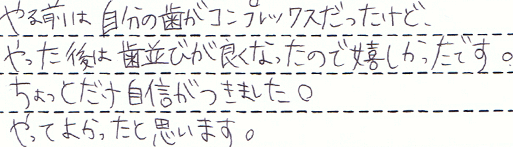 やる前は自分の歯がコンプレックスだったけど、
やった後は歯並びが良くなったので嬉しかったです。
ちょっとだけ自信がつきました。
やってよかったと思います。